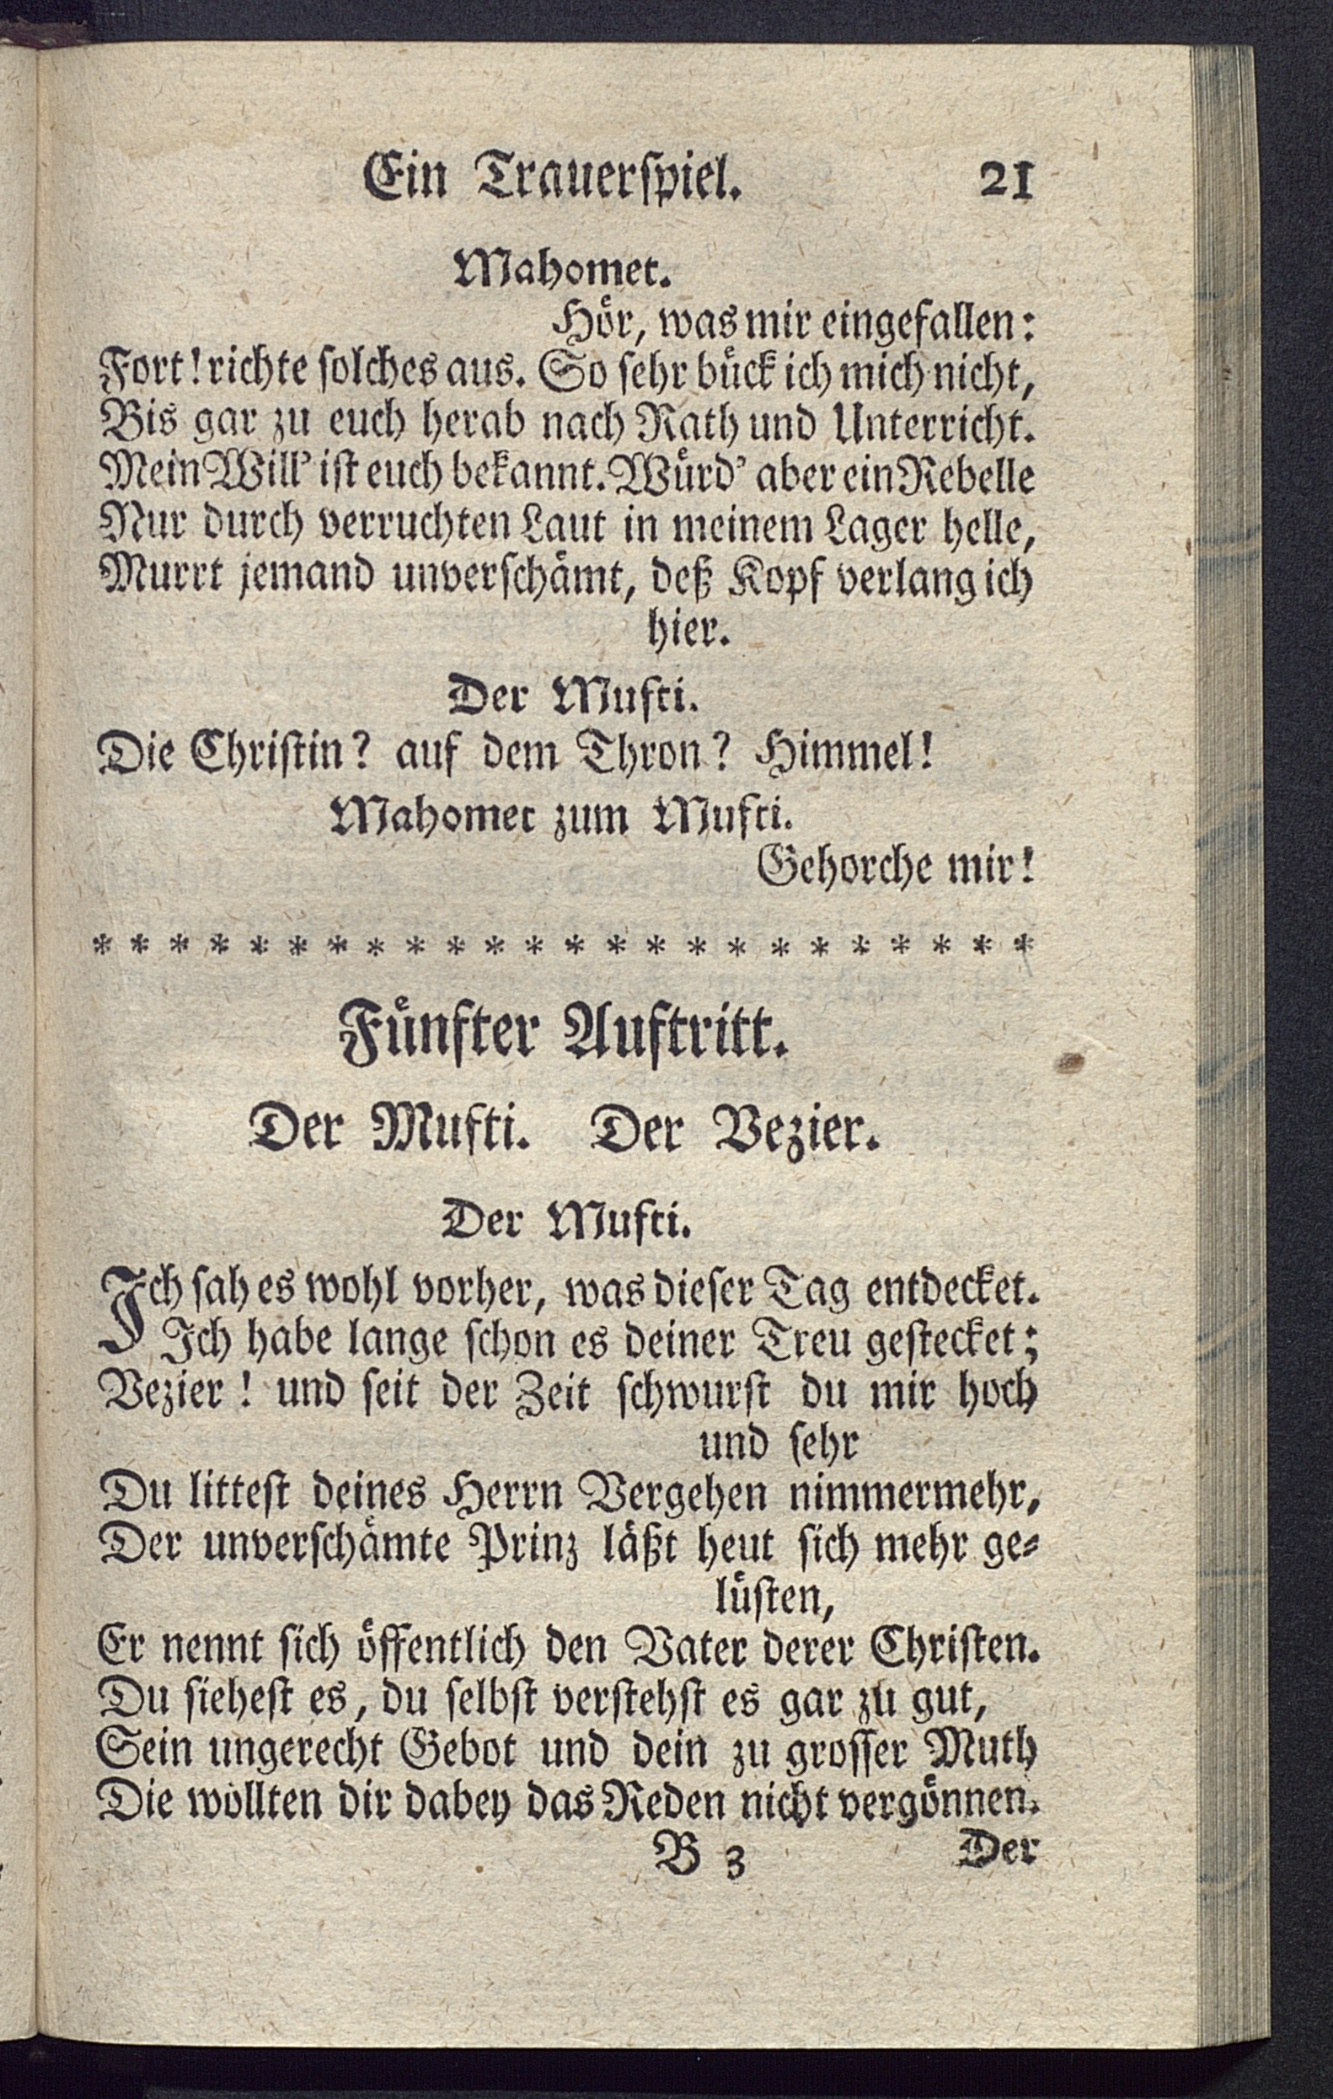 Ein Trauerspiel. 21
Mahomet.
Hör, was mir eingefallen:
Fort! richte solches aus. So sehr bück ich mich nicht,
Bis gar zu euch herab nach Rath und Unterricht.
Mein Will' ist euch bekannt. Würd' aber ein Rebelle
Nur durch verruchten Laut in meinem Lager helle,
Murrt jemand unverschämt, deß Kopf verlang ich
hier.
Der Mufti.
Die Christin? auf dem Thron? Himmel!
Mahomet zum Mufti.
Gehorche mir!
* * * * * * * * * * * * * * * * * * * * * * * *
Fünfter Auftritt.
Der Mufti. Der Vezier.
Der Mufti.
Ich sah es wohl vorher, was dieser Tag entdecket.
Ich habe lange schon es deiner Treu gestecket;
Vezier! und seit der Zeit schwurst du mir hoch
und sehr
Du littest deines Herrn Vergehen nimmermehr,
Der unverschämte Prinz läßt heut sich mehr ge-
lüsten,
Er nennt sich öffentlich den Vater derer Christen.
Du siehest es, du selbst verstehst es gar zu gut,
Sein ungerecht Gebot und dein zu grosser Muth
Die wollten dir dabey das Reden nicht vergönnen.
B 3 Der